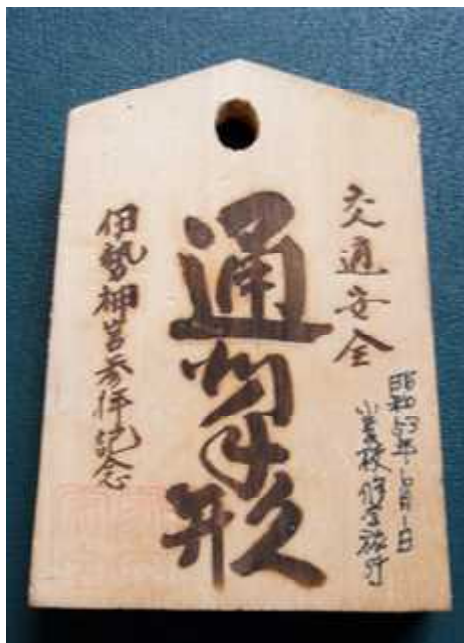 交通安全
昭和53年6月1日
小学校修学旅行
通行手形
伊勢神宮参拝記念